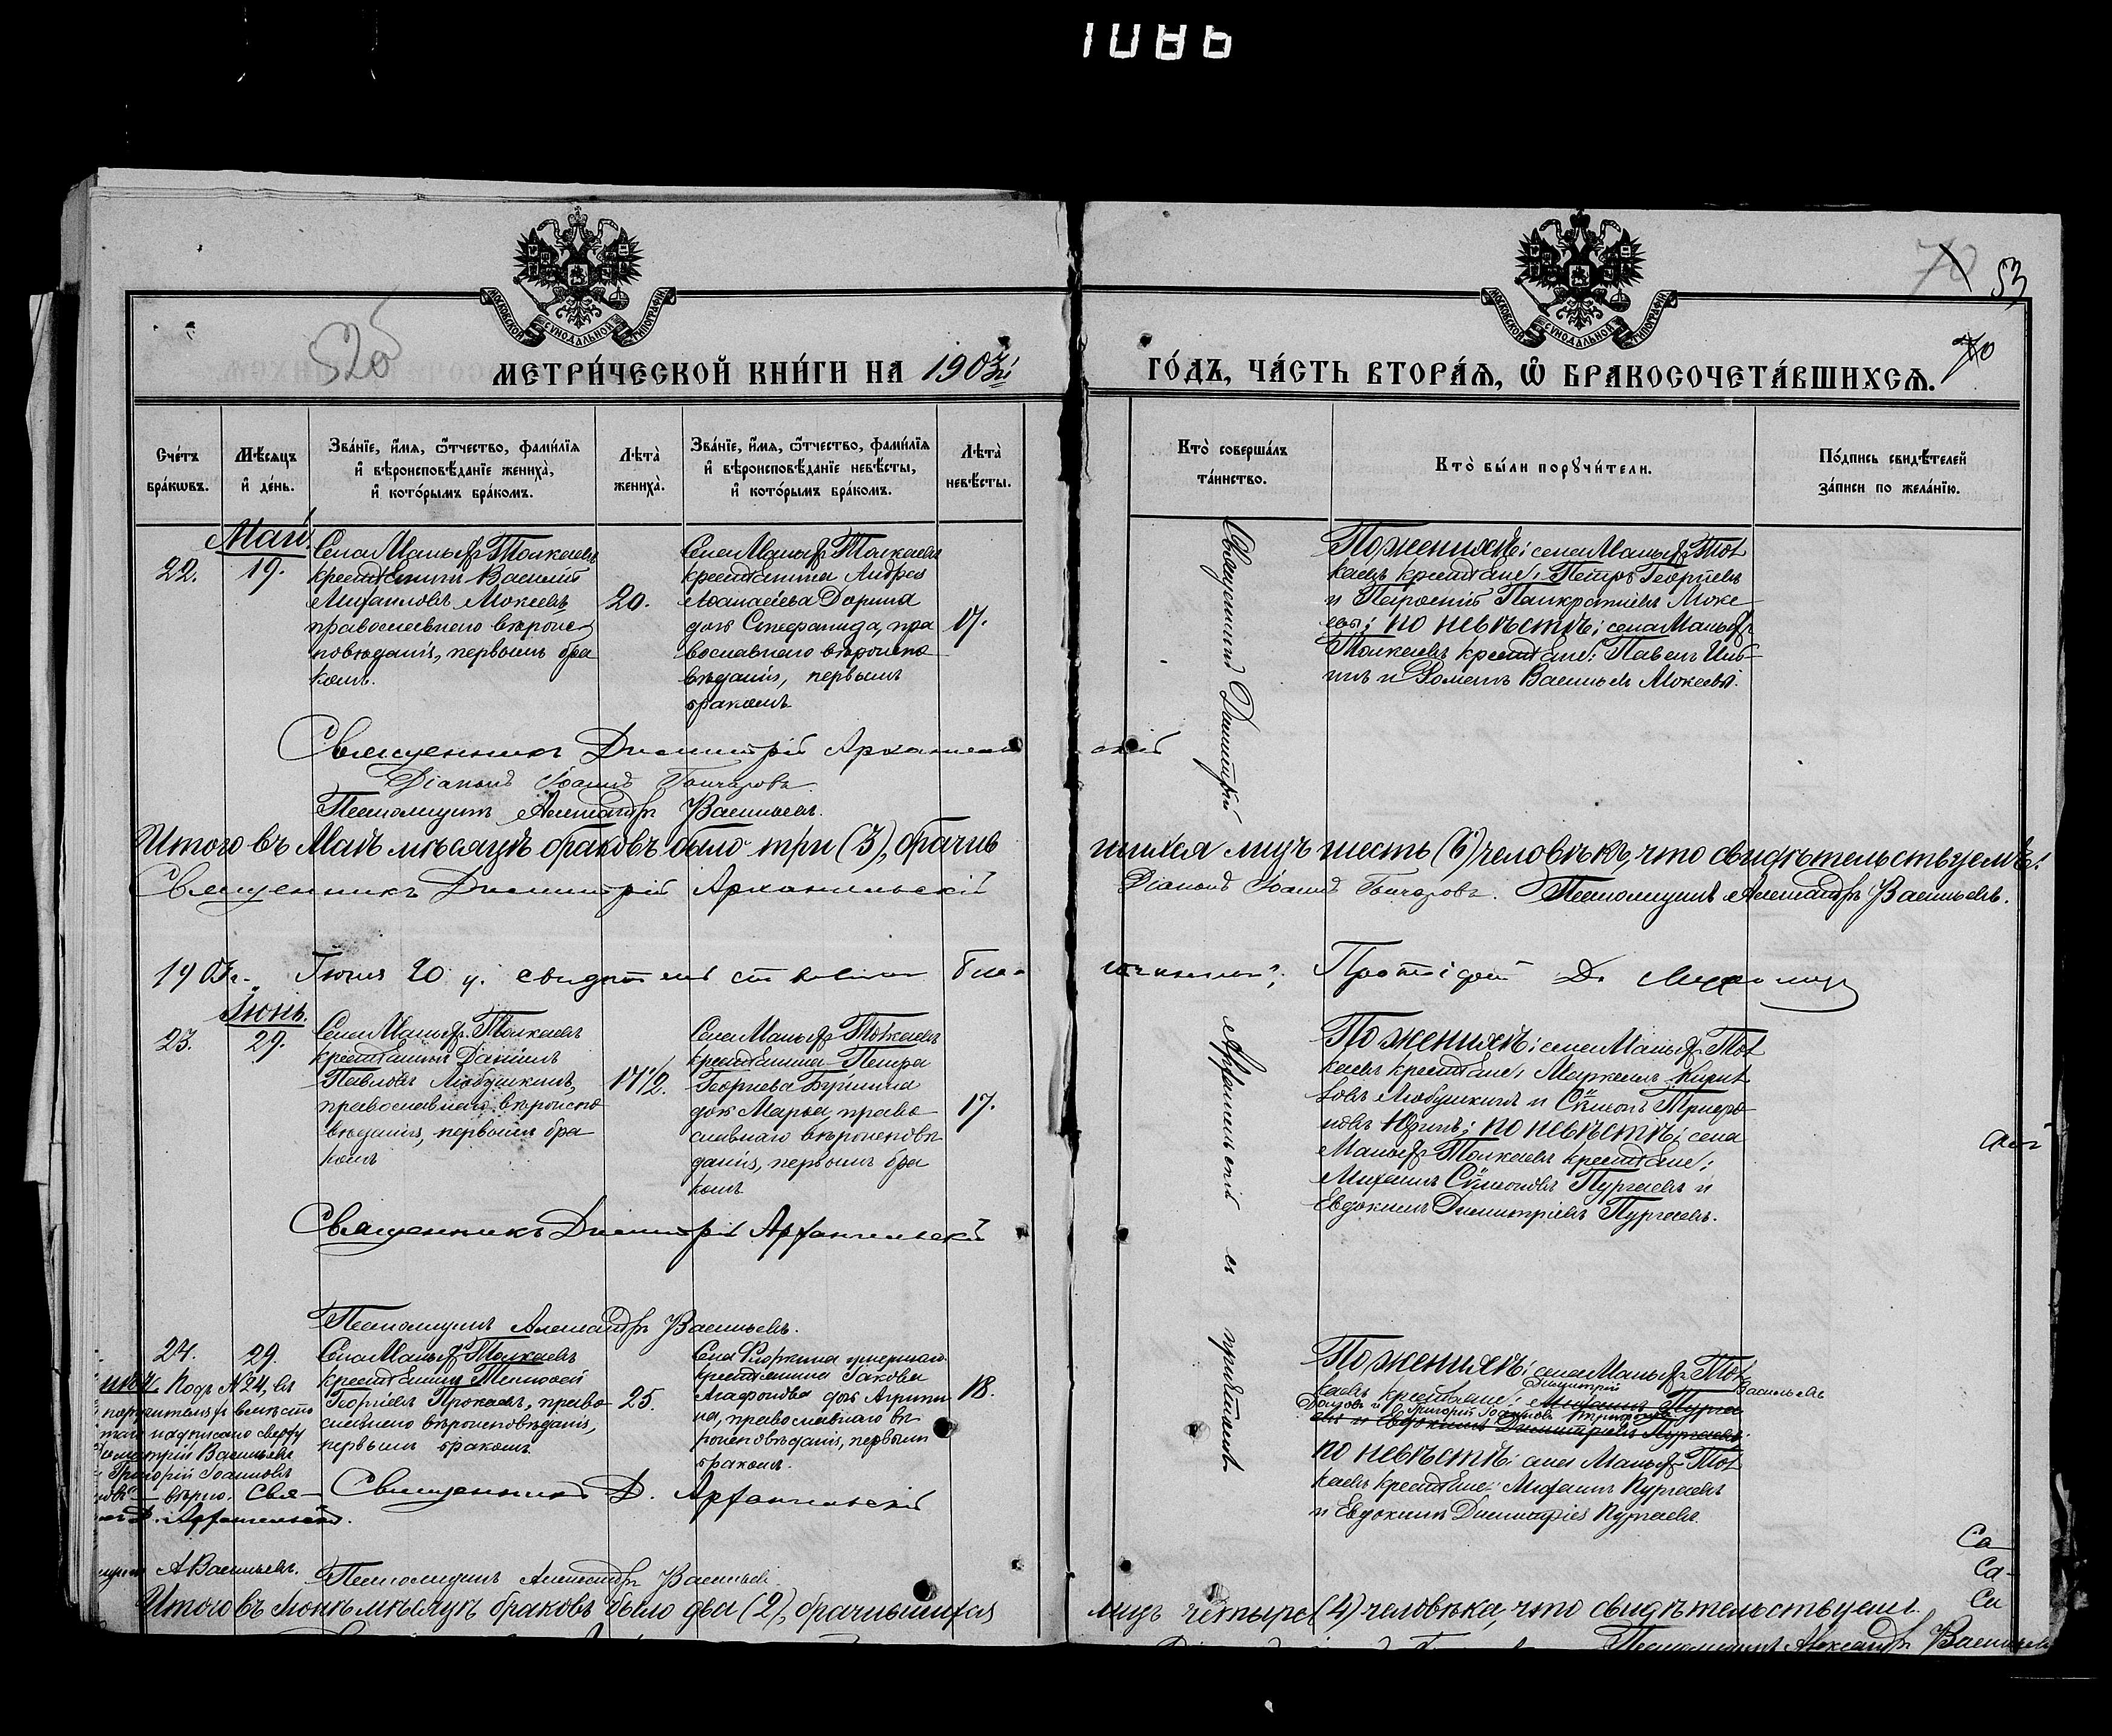 1086
МОСКОВСКОЙ СѴНОДАЛЬНОЙ ТИПОГРАФІИ
МОСКОВСКОЙ СѴНОДАЛЬНОЙ ТИПОГРАФІИ
70 53
520
70
МЕТРИ́ЧЕСКОЙ КНИ́ГИ НА 1903й
ГО́ДЪ, ЧА́СТЬ ВТОРА́Ѧ, Ѽ БРАКОСОЧЕТА́ВШИХСѦ.
Сче́тъ бра́кωвъ.
Мѣ́сѧцъ и҆ де́нь.
Зва́нїе, и҆́мѧ, ѻ҆́тчество, фами́лїѧ и҆ вѣроисповѣ́данїе жениха̀, и҆ кото́рымъ бра́комъ.
Лѣ́та жениха̀.
Зва́нїе, и҆́мѧ, ѻ҆́тчество, фами́лїѧ и҆ вѣроисповѣ́данїе невѣ́сты, и҆ кото́рымъ бра́комъ.
Лѣ́та невѣ́сты.
Кто̀ соверша́лъ та́инство.
Кто̀ бы́ли порꙋчи́тели.
По́дпись свидѣ́телей за́писи по жела́нїю.
Май.
22. 19.
Села Малыхъ Толкаевъ
крестьянинъ Василій
Михаиловъ Мокеевъ
православнаго вѣроис
повѣданія, первымъ бра
комъ.
20.
Села Малыхъ Толкаевъ
крестьянина Андрея
Аѳанасіева Дорина
дочь Стефанида, пра
вославнаго вѣроиспо
вѣданія, первымъ
бракомъ
17.
Священникъ Димитрій
По женихѣ: села Малыхъ Тол
каевъ крестьяне: Петръ Георгіевъ
и Панкратіевъ Моке
евы; по невѣстѣ: села Малыхъ
Толкаевъ крестьяне: Павелъ
и Романъ Васильев Мокеевы.
Священникъ Димитрій Архангельскій
Діаконъ Іоаннъ Гончаровъ
Псаломщикъ Александръ Васильевъ.
Итого въ Маѣ мѣсяцѣ браковъ было три (3), брачив
шихся лицъ шесть (6) человѣкъ, что свидѣтельствуемъ:
Священникъ Димитрій Архангельскій
Діаконъ Іоаннъ Гончаровъ. Псаломщикъ Александръ Васильевъ.
1903г. Іюня 20 д. свидѣтельствовалъ Бла-
гочинный, Протоіерей
Іюнь.
23. 29.
Села Малыхъ Толкаевъ
крестьянинъ Даніилъ
Павловъ Любушкинъ,
православнаго вѣроиспо
вѣданія, первымъ бра
комъ
17½.
Села Малыхъ Толкаевъ
крестьянина Петра
Георгіева
дочь Марья, право
славнаго вѣроисповѣ
данія, первымъ бра
комъ
17.
Архангельскій съ причтомъ
По женихѣ: села Малыхъ Тол
каевъ крестьяне: Маркеллъ Кирил
ловъ Любушкинъ и Симеонъ Трифо
новъ; по невѣстѣ: села
Малыхъ Толкаевъ крестьяне:
Михаилъ Симеоновъ Пургаевъ и
Евдокимъ Димитріевъ Пургаевъ.
Священникъ Димитрій Архангельскій
Псаломщикъ Александръ Васильевъ.
24. 29.
Села Малыхъ Толкаевъ
крестьянинъ Тимоѳей
Георгіевъ Прокаевъ, право
славнаго вѣроисповѣданія,
первымъ бракомъ.
25.
умершаго
крестьянина Іакова
Агафонова дочь Агрипи
на, православнаго вѣ
роисповѣданія, первымъ
бракомъ.
18.
По женихѣ: села Малыхъ Тол
каевъ крестьяне: Димитрій Васильевъ
Михаилъ Пурга
Григорій Іоанновъ
евъ и Евдокимъ Димитріевъ Пургаевъ.
по невѣстѣ: села Малыхъ Тол
каевъ крестьяне: Михаилъ Пургаевъ
и Евдокимъ Димитріев Пургаевъ.
подъ №24, въ
вмѣсто
надписано сверху
Димитрій Васильевъ
и Григорій Іоанновъ
вѣрно. Свя-
Д. Архангельскій.
А Васильевъ.
Священникъ Д. Архангельскій
Псаломщикъ Александръ Васильев.
Итого въ Іюнѣ мѣсяцѣ браковъ было два (2), брачившихся
лицъ четыре (4) человѣка, что свидѣтельствуемъ.
Псаломщикъ Александръ Васильевъ